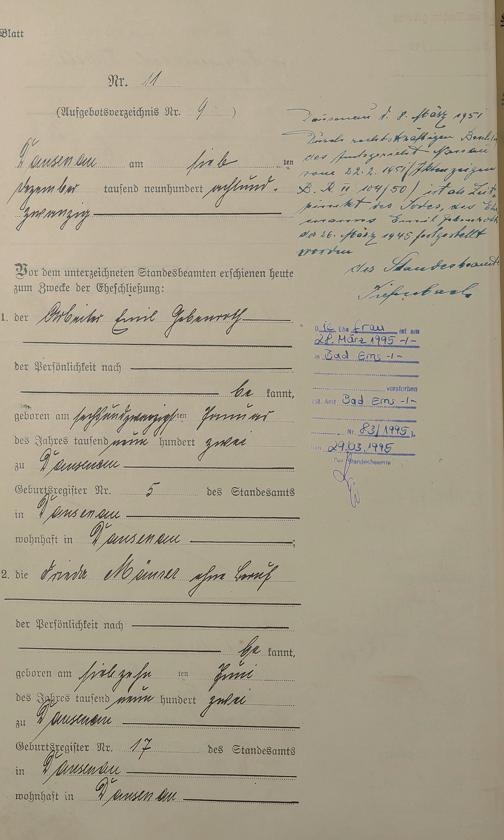 Blatt
Nr. 11
(Aufgebotsverzeichnis Nr. 9)
Dausenau am sieb ten
Dezember tausend neunhundert achtund-
zwanzig
Vor dem unterzeichneten Standesbeamten erschienen heute
zum Zwecke der Eheschließung:
1. der Arbeiter Emil Gebenroth
der Persönlichkeit nach
be kannt,
geboren am sechsundzwanzigsten Januar
des Jahres tausend neun hundert zwei
zu Dausenau
Geburtsregister Nr. 5 des Standesamts
in Dausenau
wohnhaft in Dausenau;
2. die Frieda ohne Beruf
der Persönlichkeit nach
be kannt,
geboren am siebzehn ten Juni
des Jahres tausend neun hundert zwei
zu Dausenau
Geburtsregister Nr. 17 des Standesamts
in Dausenau
wohnhaft in Dausenau
Dausenau d. 8. März 1951
Durch rechtskräftigen Beschluß
des Amtsgericht Nassau
vom 22.2.1951 (Aktenzeichen
II 104/50) ist als Zeit-
punkt des Todes, des Ehe-
manns Emil Gebenroth
der 26. März 1945 festgestellt
worden
der Standesbeamte
Die Ehefrau ist am
28. März 1995 -/-
in Bad Ems -/-
verstorben
Bad Ems -/-
Nr. 83/1995).
29.03.1995
Der Standesbeamte